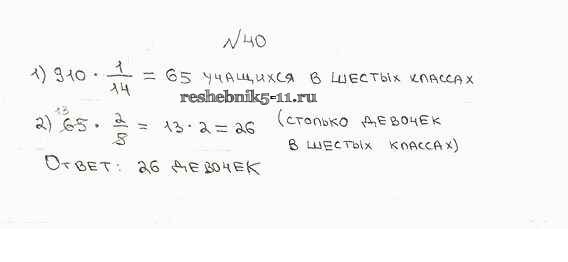 №40
1) 910 · 1/14 = 65 учащихся в шестых классах
reshebnik5-11.ru
2) 65 · 2/5 = 13 · 2 = 26 (столько девочек
13
в шестых классах)
Ответ: 26 девочек